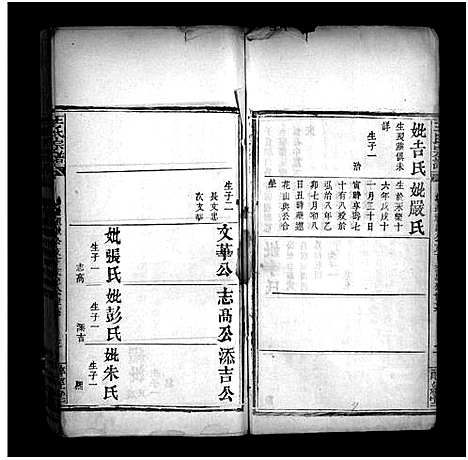 妣吉氏
生歿葬俱未
詳
生子一
治
妣嚴氏
生於永樂十
六年戊戌十
一月三十日
寅時享壽七
十有八歿於
弘治八年乙
卯七月初八
日丑時葬蓮
花山與公合
塋
生子二
長文忠
次文華
文華公
妣張氏
生子一
志高
志高公
妣彭氏
生子一
添吉
添吉公
妣朱氏
生子一